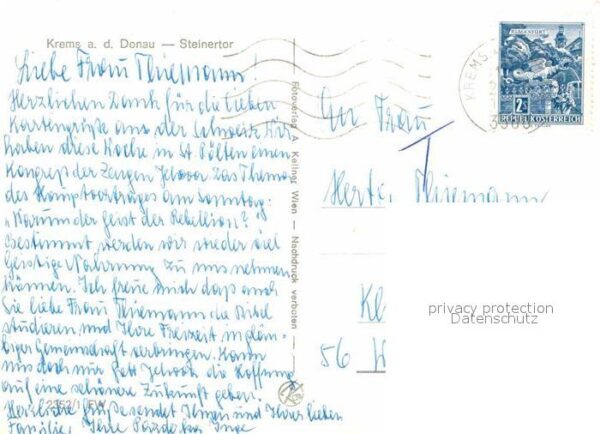 Krems a. d. Donau — Steinertor
Liebe Frau Thiemann!
Herzlichen Dank für die lieben
Kartengrüße aus der Schweiz. Wir
haben diese Woche in St. Pölten einen
Kongreß der Zeugen Jehovas. Das Thema
des Hauptvortrages am Sonntag:
"Warum der Geist der Rebellion?"
Bestimmt werden wir wieder viel
geistige Nahrung zu uns nehmen
können. Ich freue mich daß auch
Sie liebe Frau Thiemann die Bibel
studieren und Ihre Freizeit in
Gemeinschaft verbringen. Kann
uns doch nur Gott Jehova die Hoffnung
auf eine schönere Zukunft geben!
Herzliche Grüße sendet Ihnen und Ihrer lieben
Familie, Ihre Inge
2352/1 EW
Fotoverlag A. Kellner, Wien — Nachdruck verboten
An Frau
Herta Thiemann
56
KLAGENFURT
2S
REPUBLIK ÖSTERREICH
KREMS
privacy protection
Datenschutz